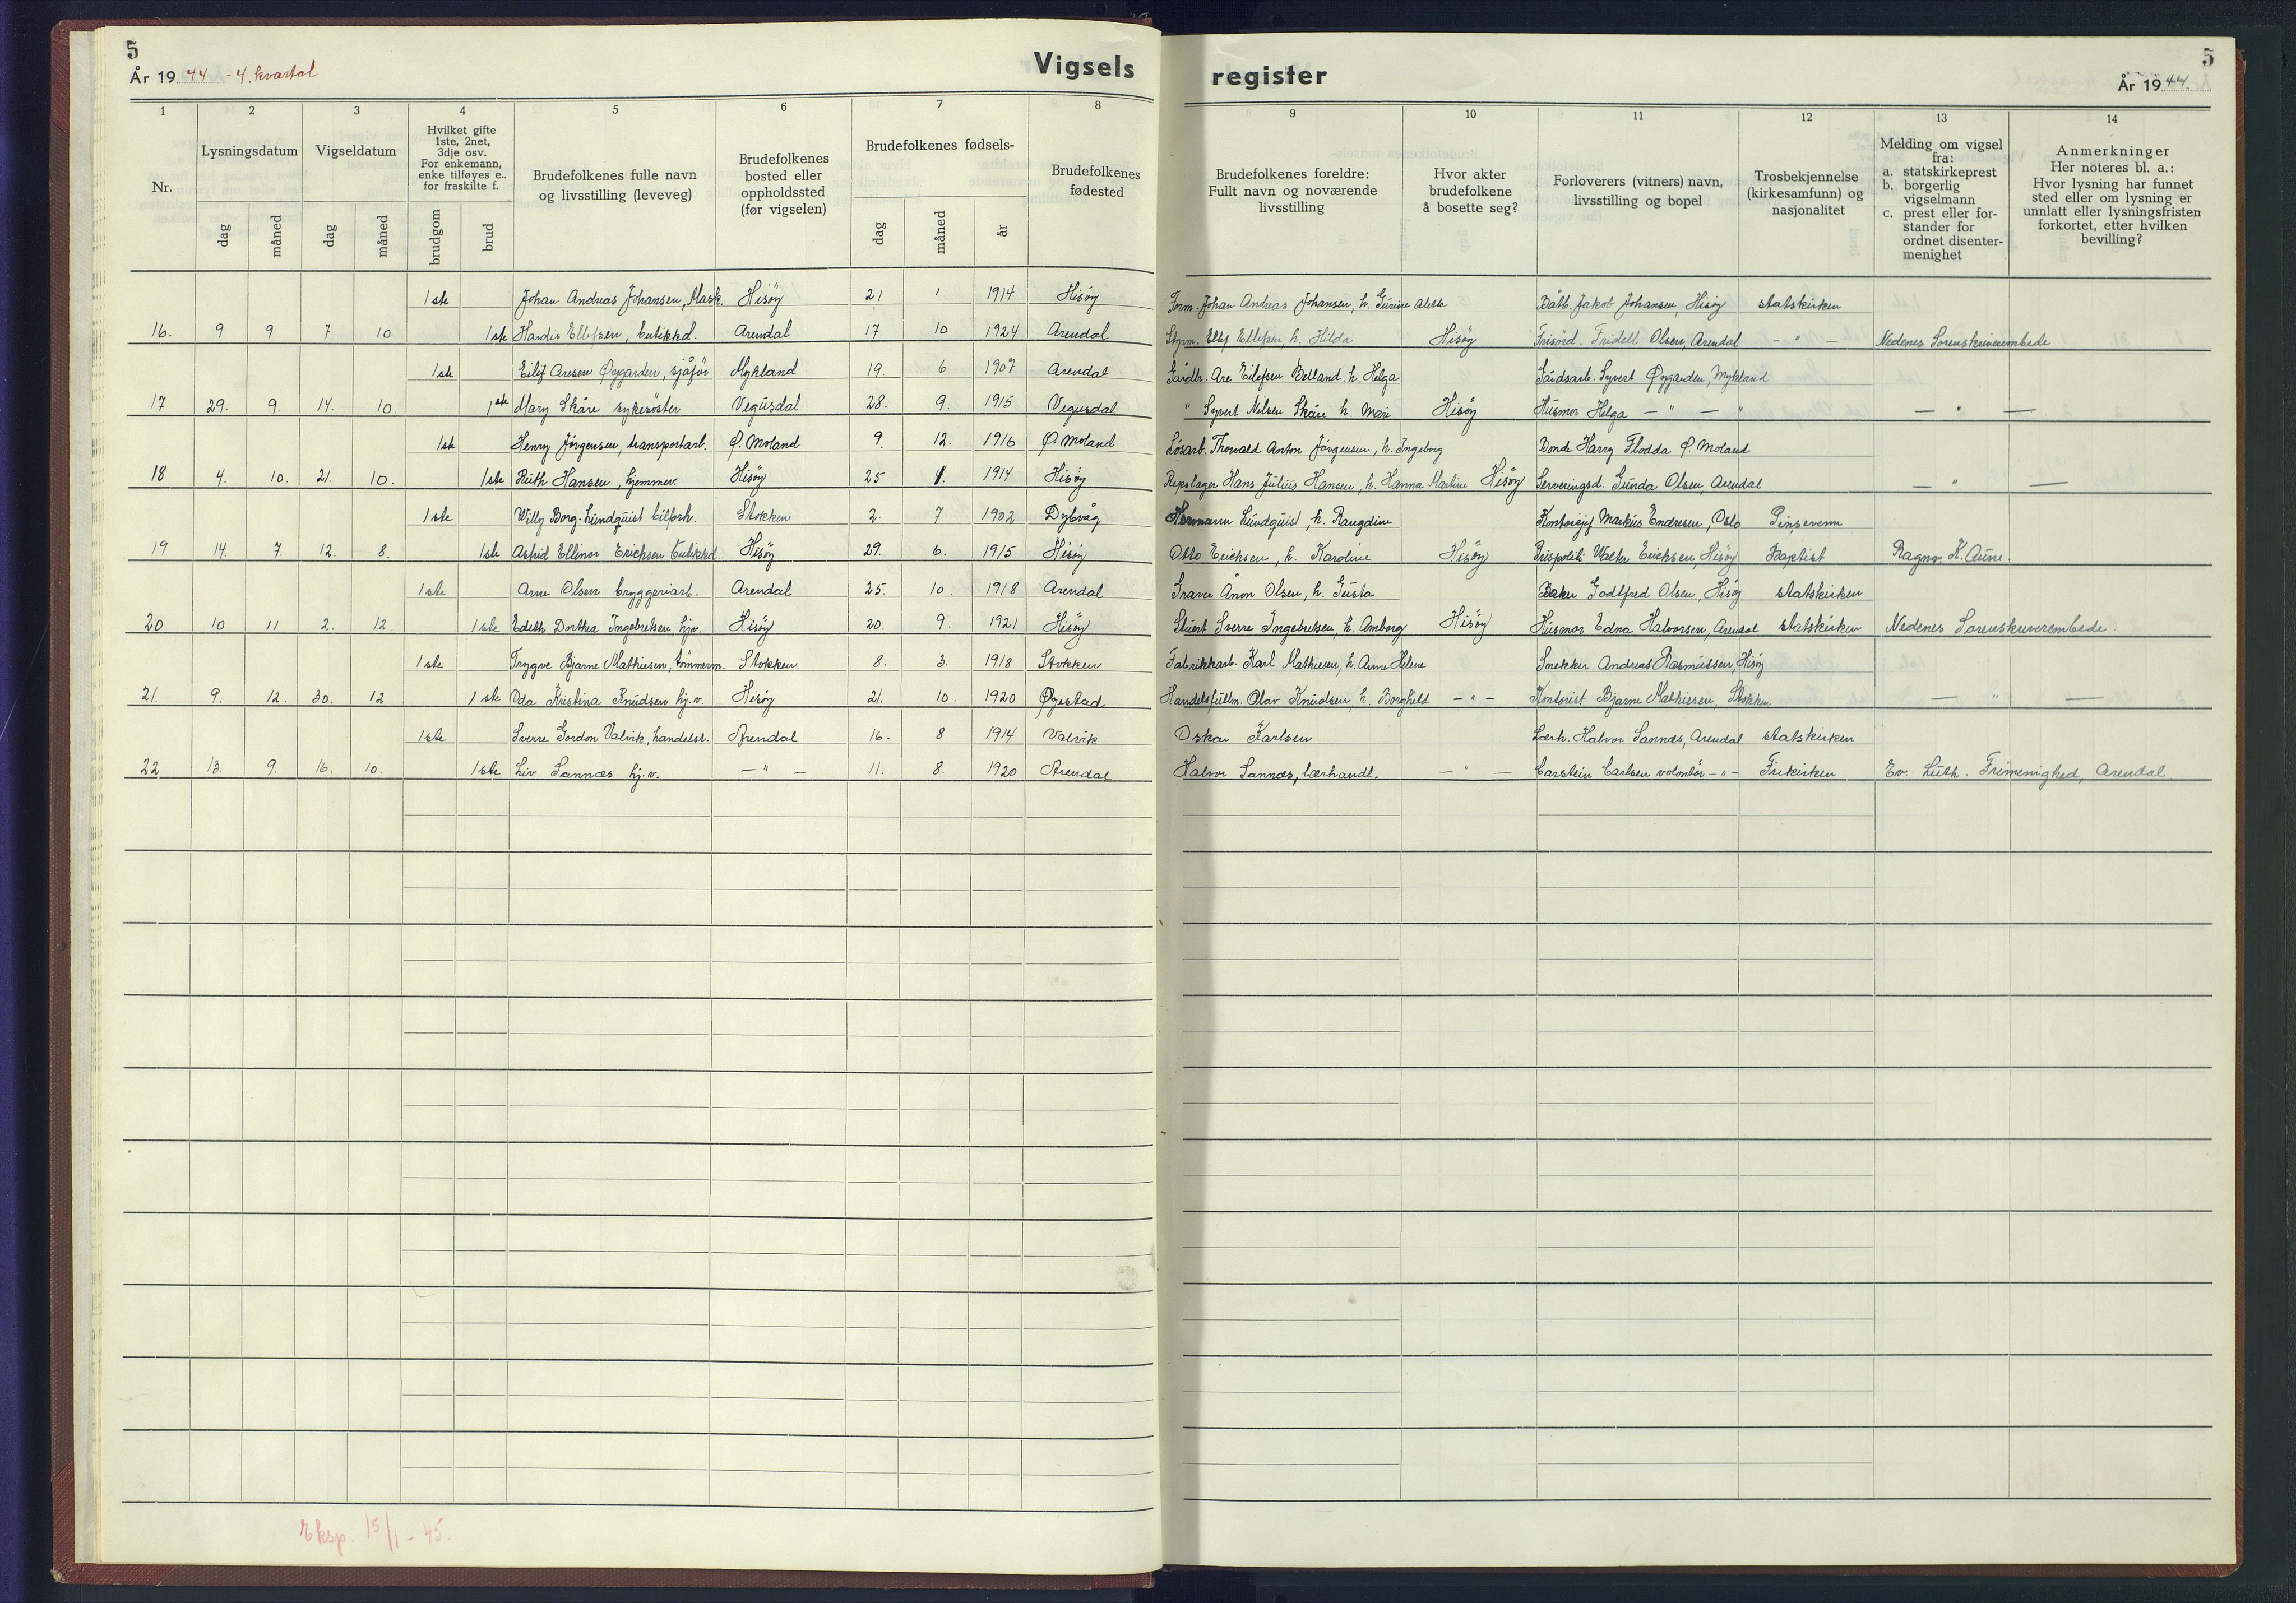 5
År 1944 - 4. kvartal
Vigsels
register
5
År 1944.
1 2 3 4 5 6 7 8 9 10 11 12 13 14
Nr.
Lysningsdatum
dag måned
Vigseldatum
dag måned
Hvilket gifte
1ste, 2net,
3dje osv.
For enkemann,
enke tilføyes e..
for fraskilte f.
brudgom brud
Brudefolkenes fulle navn
og livsstilling (leveveg)
Brudefolkenes
bosted eller
oppholdssted
(før vigselen)
Brudefolkenes fødsels-
dag måned år
Brudefolkenes
fødested
Brudefolkenes foreldre:
Fullt navn og noværende
livsstilling
Hvor akter
brudefolkene
å bosette seg?
Forloverers (vitners) navn,
livsstilling og bopel
Trosbekjennelse
(kirkesamfunn) og
nasjonalitet
Melding om vigsel
fra:
a. statskirkeprest
b. borgerlig
vigselmann
c. prest eller for-
stander for
ordnet disenter-
menighet
Anmerkninger
Her noteres bl. a.:
Hvor lysning har funnet
sted eller om lysning er
unnlatt eller lysningsfristen
forkortet, etter hvilken
bevilling?
1ste Johan Andreas Johansen, Mask. Hisöy 21 1 1914 Hisöy Form. Johan Andreas Johansen, h. Gurine Båtb. Jakob Johansen, Hisöy statskirken
16. 9 9 7 10 1ste Hardis Ellefsen, butikkd. Arendal 17 10 1924 Arendal Styrm. Ellef Ellefsen h. Hilda Hisöy Frisörd. Fridell Olsen, Arendal - " - Nedenes Sorenskriverembede
1ste Eilif Aresen Øygarden, sjåför Mykland 19. 6 1907 Arendal Gårdbr. Are Eilefsen h. Helga Gårdsarb. Syvert Øygarden, Mykland
17 29. 9. 14. 10. 1ste Mary Skåre sykesöster Vegusdal 28. 9. 1915 Vegusdal " Syvert Nilsen Skåre h. Mari Hisöy Husmor Helga - " - " — " —
1ste Henry Jörgensen, transportarb. Ø. Moland 9. 12. 1916 Ø. Moland Lösarb. Thorvald Anton Jörgensen, h. Ingeborg Bonde Harry Flodda Ø. Moland
18 4. 10. 21. 10. 1ste Ruth Hansen, hjemmev. Hisöy 25 1914 Hisöy Repslager Hans Julius Hansen, h. Hanna Martine Hisöy Serveringsd. Gunda Olsen, Arendal — " —
1ste Willy Borg-Lundquist bilforh. Stokken 2. 7 1902 Dybvåg Hermann Lundquist, h. Raugdine Kontorsjef Markus Endresen, Oslo Pinsevenn
19 14. 7. 12. 8. 1ste Astrid Ellinor Erichsen butikkd. Hisöy 29. 6. 1915 Hisöy Otto Erichsen, h. Karoline Hisöy Prispoliti Walter Erichsen, Hisöy Baptist Ragnv. K. Aune.
1ste Arne Olsen bryggeriarb. Arendal 25. 10. 1918 Arendal Graver Anon Olsen, h. Gusta Baker Godtfred Olsen, Hisöy statskirken
20 10 11 2. 12 1ste Edith Dorthea Ingebretsen, hjv. Hisöy 20. 9. 1921 Hisöy Stuert Sverre Ingebretsen, h. Amborg Hisöy Husmor Edna Halvorsen, Arendal statskirken Nedenes Sorenskriverembede
1ste Trygve Bjarne Mathiesen, tömmerm. Stokken 8. 3. 1918 Stokken Fabrikkarb. Karl Mathiesen, h. Anne Helene Snekker Andreas Rasmussen, Hisöy
21. 9. 12. 30. 12 1ste Oda Kristina Knudsen hj.v. Hisöy 21. 10. 1920 Øyestad Handelsfullm. Olav Knudsen, h. Borghild - " - Kontorist Bjarne Mathiesen, Stokken — " —
1ste Sverre Gordon Valvik, handelsr. Arendal 16. 8 1914 Valvik Oskar Karlsen Lærh. Halvor Sannæs, Arendal statskirken
22 13. 9. 16. 10. 1ste Liv Sannæs hj.v. — " — 11. 8. 1920 Arendal Halvor Sannæs, lærhandl. — " — Carstein Carlsen volontör - " - Frikirken Ev. Luth. Frimenighed, Arendal.
Eksp. 15/1 - 45.